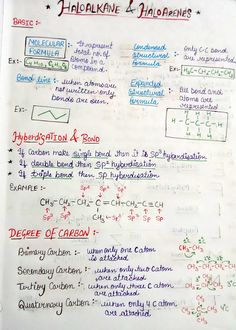 HALOALKANE & HALOARENES
BASIC :-
MOLECULAR FORMULA :- to represent total no. of atoms in a compound.
Ex:- C6H12O6
Condensed structural formula :- only C-C bond are represented.
Ex:- H3C-CH2-CH2-CH3
Bond line :- when atoms are not written only bonds are seen.
Ex:-
Expanded structural formula :- All bond and atoms are represented
Ex:-
Hyberdisation & Bond
* If carbon make single bond than it is Sp3 hyberdisation
* If double bond then Sp2 hyberdisation
* If triple bond then Sp hyberdisation
EXAMPLE :-
CH3-CH2-CH2-C=CH-CH2-C≡CH
DEGREE OF CARBON :-
Primary Carbon :- when only one C atom is attached
Secondary Carbon :- when only two C atom are attached
Tertiary Carbon :- when only three C atom are attached
Quaternary Carbon :- when only 4 C atom are attached